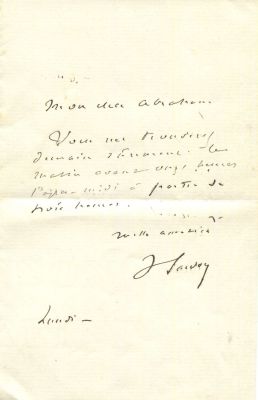 Mon cher Abraham
Vous me trouverez
demain
matin avant onze heures
l'après-midi à partir de
trois heures.
mille amitiés
Lundi –